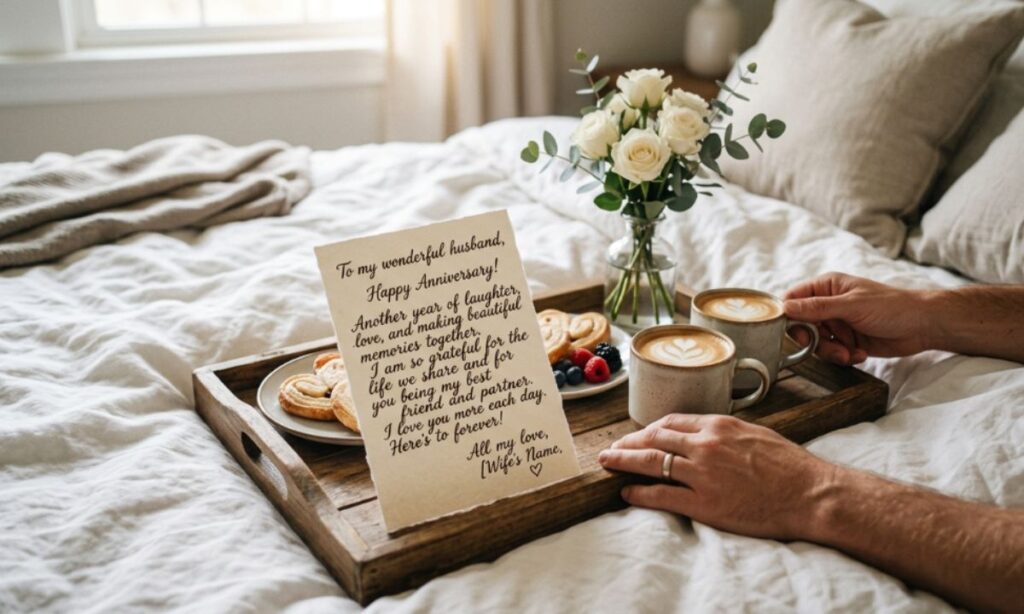 To my wonderful husband,
Happy Anniversary!
Another year of laughter,
love, and making beautiful
memories together.
I am so grateful for the
life we share and for
you being my best
friend and partner.
I love you more each day.
Here's to forever!
All my love,
[Wife's Name,